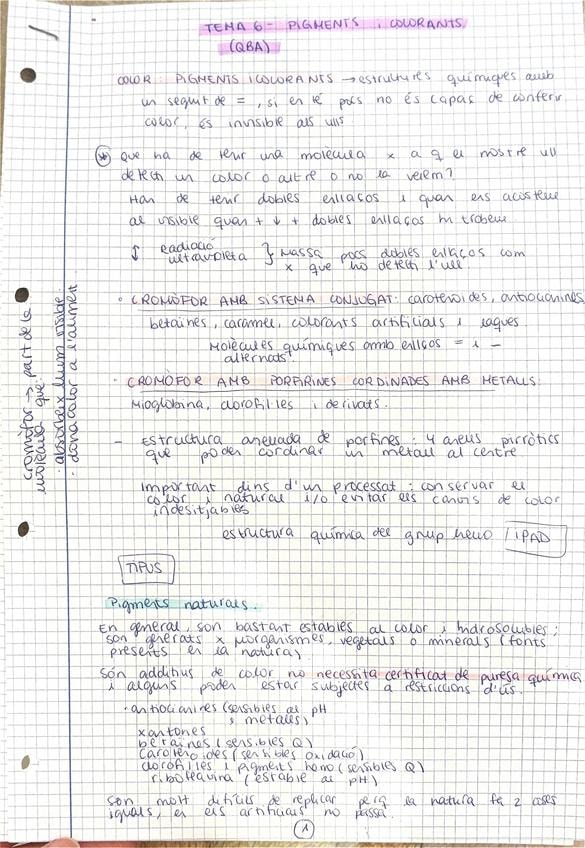 TEMA 6 - PIGMENTS i COLORANTS
(QBA)
COLOR: PIGMENTS i COLORANTS → estructures químiques amb
un seguit de =, si en té pocs no és capaç de conferir
color, és invisible als ulls
Que ha de tenir una molècula x a q el nostre ull
detecti un color o altre o no la verem?
Han de tenir dobles enllaços i quan ens acostem
al visible quan + ↓ + dobles enllaços hi trobem
↕ Radiació
ultravioleta } Massa pocs dobles enllaços com
x que ho detecti l'ull.
• CROMÒFOR AMB SISTEMA CONJUGAT: carotenoides, antiocianines,
betaïnes, caramel, colorants artificials i laques.
Molècules químiques amb enllços = i -
alternats.
• CROMÒFOR AMB PORFIRINES CORDINADES AMB METALLS:
Mioglobina, clorofil·les i derivats.
- Estructura anellada de porfines: 4 anells pirròlics
que poden cordinar un metall al centre
Important dins d'un processat: conservar el
color i natural i/o evitar els canvis de color
indesitjables
estructura química del grup hemo / IPAD
cromòfor → part de la
molècula que:
· absorbeix llum visible.
· dona color a l'aliment.
TIPUS
Pigments naturals.
En general, són bastant estables al color i hidrosolubles;
són generats x morganismes, vegetals o minerals (fonts
presents en la natura)
Són additius de color no necessita certificat de puresa química
i alguns poden estar subjectes a restriccions d'ús.
• antiocianines (sensibles al pH
i metalls)
xantones
betaïnes (sensibles Q)
carotenoides (sensibles oxidació)
clorofil·les i pigments hemo (sensibles Q)
riboflavina (estable al pH)
Són molt difícils de replicar perq la natura fa 2 coses
iguals, en els artificials no passa.
1